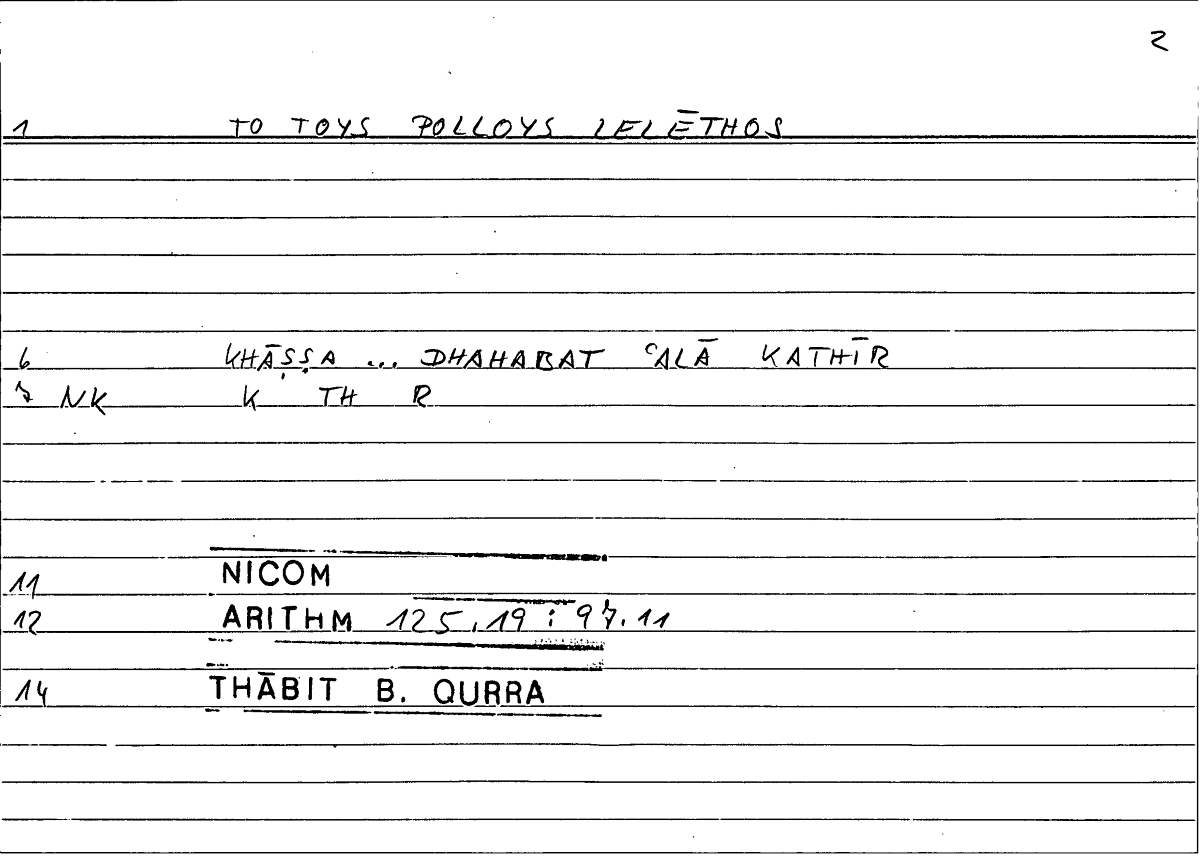 2
1 TO TOYS POLLOYS LELĒTHOS
6 KHĀṢṢA ... DHAHABAT ʿALĀ KATHĪR
7 NK K TH R
11 NICOM
12 ARITHM 125,19 : 97.11
14 THĀBIT B. QURRA